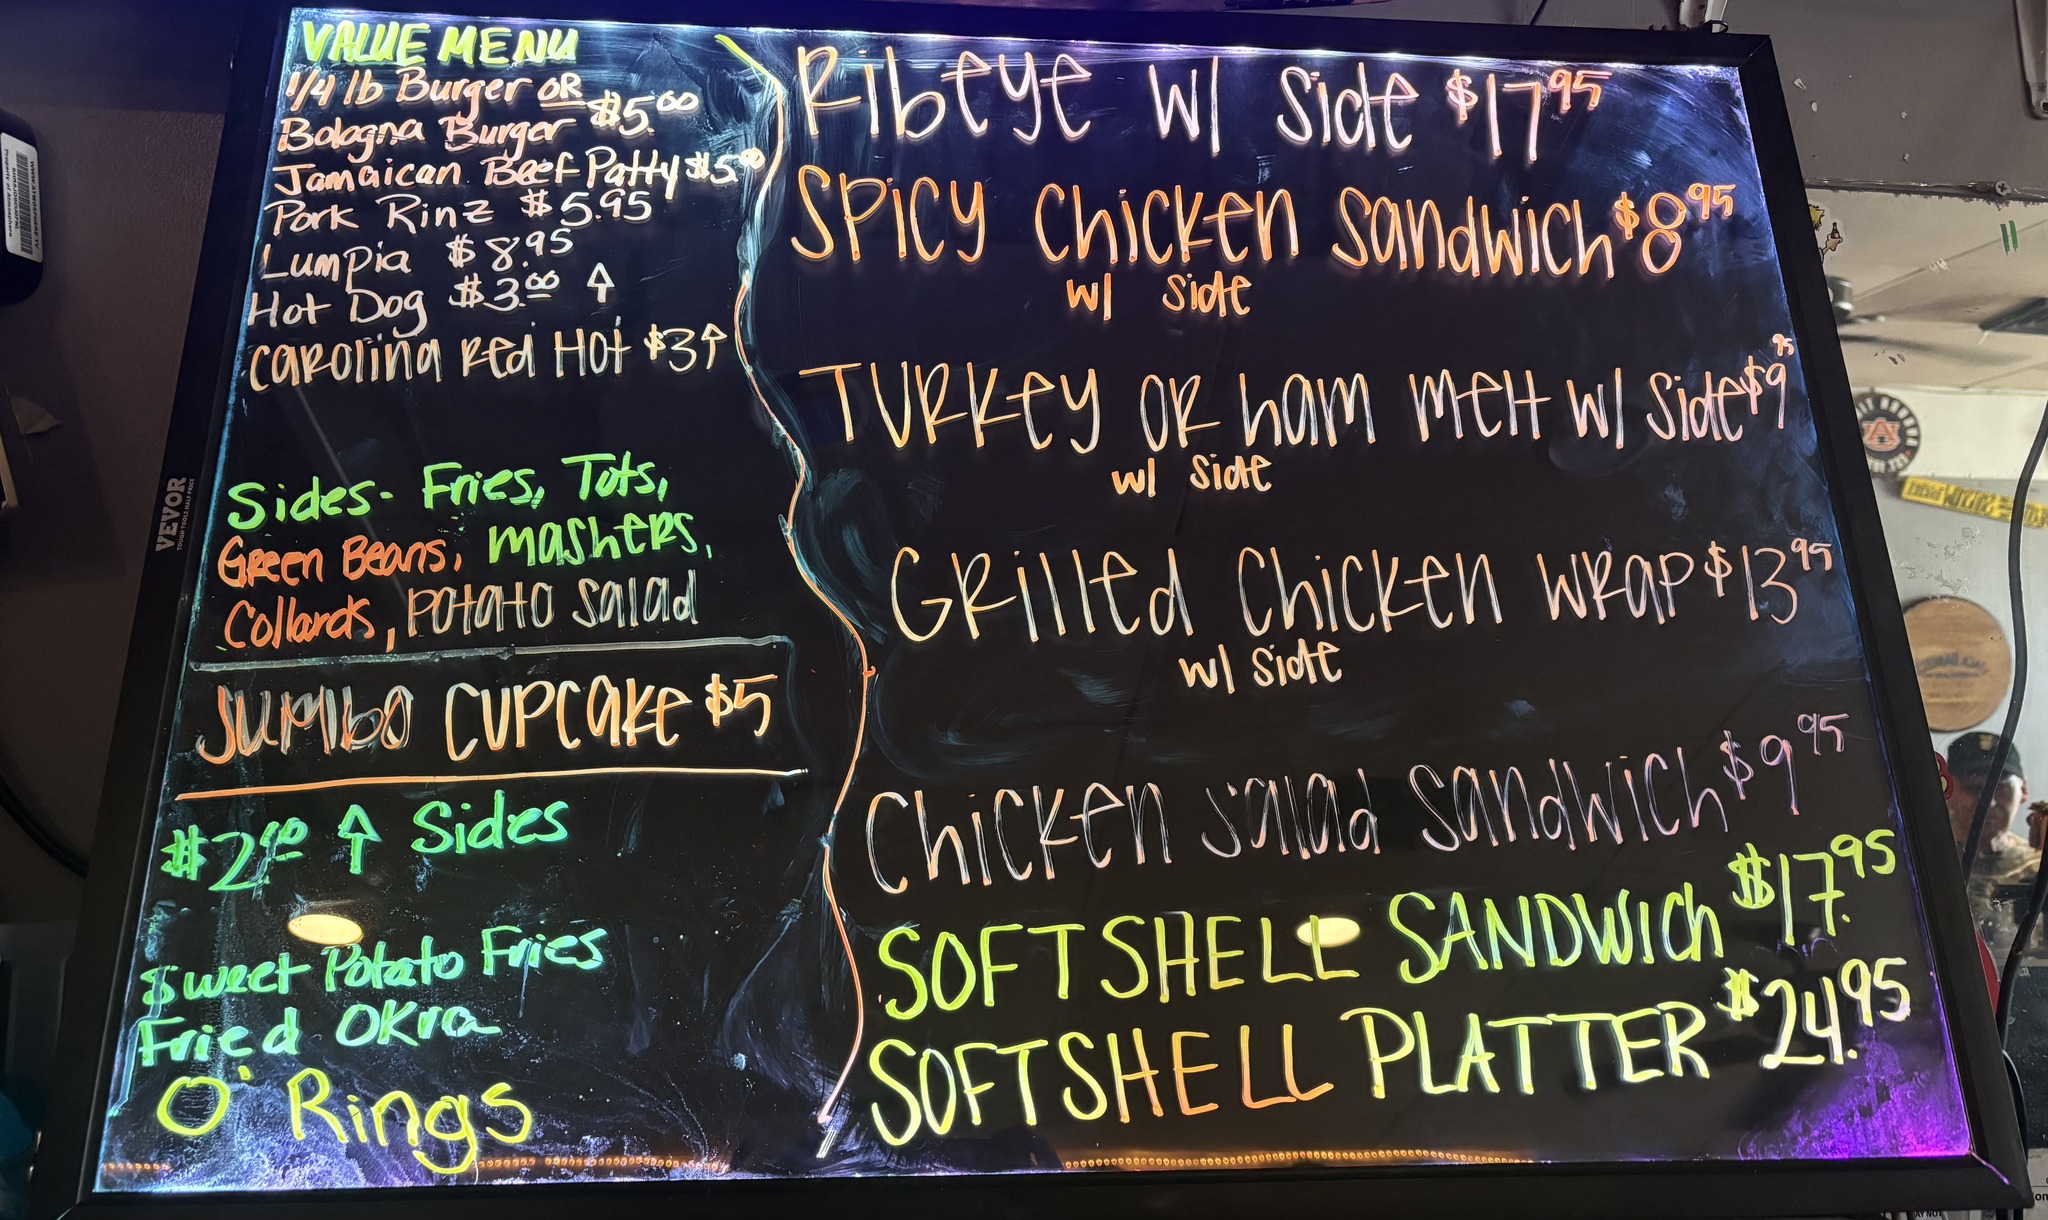 VALUE MENU
1/4 lb Burger OR
Bologna Burger $5.00
Jamaican Beef Patty $5.00
Pork Rinz $5.95
Lumpia $8.95
Hot Dog $3.00 ↑
Carolina Red Hot $3↑
Sides- Fries, Tots,
Green Beans, mashers,
Collards, Potato Salad
Jumbo Cupcake $5
$2.00 ↑ Sides
Sweet Potato Fries
Fried Okra
O' Rings
Ribeye w/ Side $17.95
Spicy Chicken Sandwich $8.95
w/ side
Turkey or ham melt w/ Side $9.95
w/ side
Grilled Chicken Wrap $13.95
w/ side
Chicken salad Sandwich $9.95
SOFTSHELL SANDWICH $17.95
SOFTSHELL PLATTER $24.95
VEVOR
TOUGH TOOLS HALF PRICE